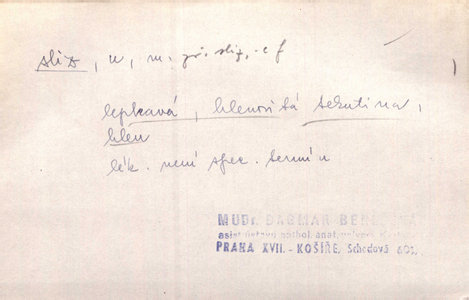 sliz, u, m. př. sliz, -e f
lepkavá, hlenovitá tekutina,
hlen
lék. není spec. termín
MUDr. DAGMAR
asist. ústavu pathol. anat.
PRAHA XVII. - KOŠÍŘE, Schodová